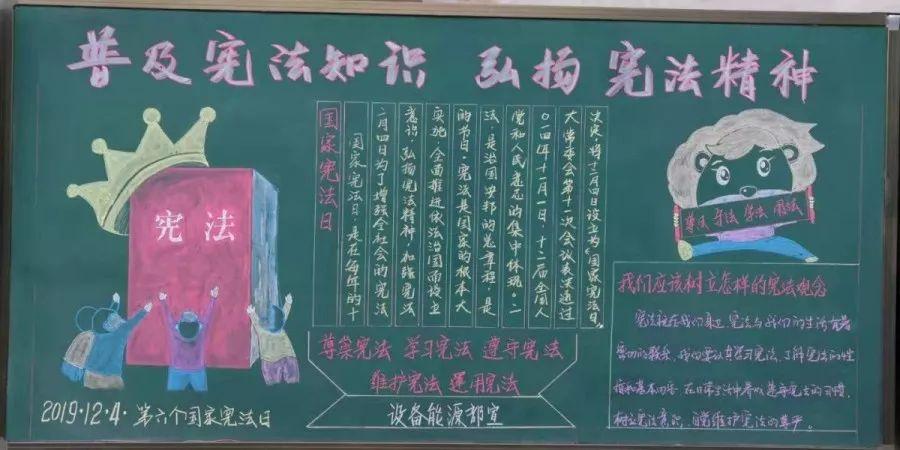 普及宪法知识 弘扬宪法精神
宪法
国家宪法日
国家宪法日，是在每年的十
二月四日为了增强全社会的宪法
意识，弘扬宪法精神，加强宪法
实施，全面推进依法治国而设立
的节日。宪法是国家的根本大
法，是治国安邦的总章程，是
党和人民意志的集中体现。二
〇一四年十一月一日，十二届全国人
大常委会第十一次会议表决通过
决定将十二月四日设立为“国家宪法日。
尊崇宪法 学习宪法 遵守宪法
维护宪法 运用宪法
设备能源部宣
2019·12·4·第六个国家宪法日
尊法 守法 学法 用法
我们应该树立怎样的宪法观念
宪法就在我们身边 宪法与我们的生活有着
密切的联系，我们要认真学习宪法、了解宪法的性
质和基本内容 在日常生活中养成遵守宪法的习惯
树立宪法意识，自觉维护宪法的尊严。